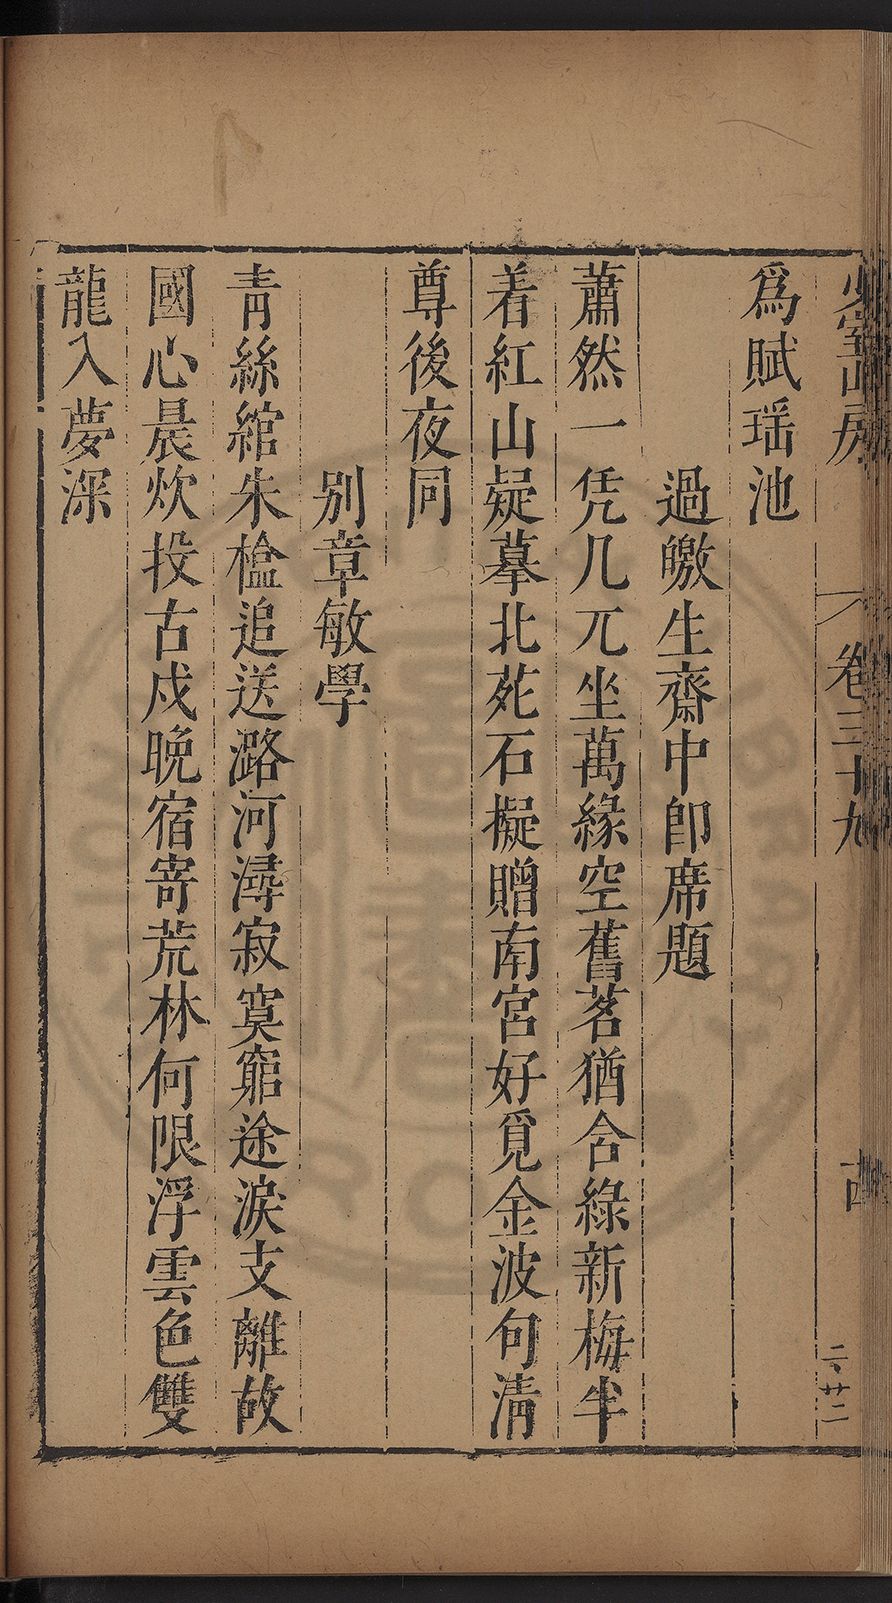 少室山房
卷三十九
二廿二
爲賦瑶池
過皦生齋中卽席題
蕭然一凭几兀坐萬緣空舊茗猶含綠新梅半
着紅山疑摹北苑石擬贈南宮好覓金波句淸
尊後夜同
别章敏學
靑絲綰朱檻追送潞河潯寂寞窮途淚支離故
國心晨炊投古戍晚宿寄荒林何限浮雲色雙
龍入夢深